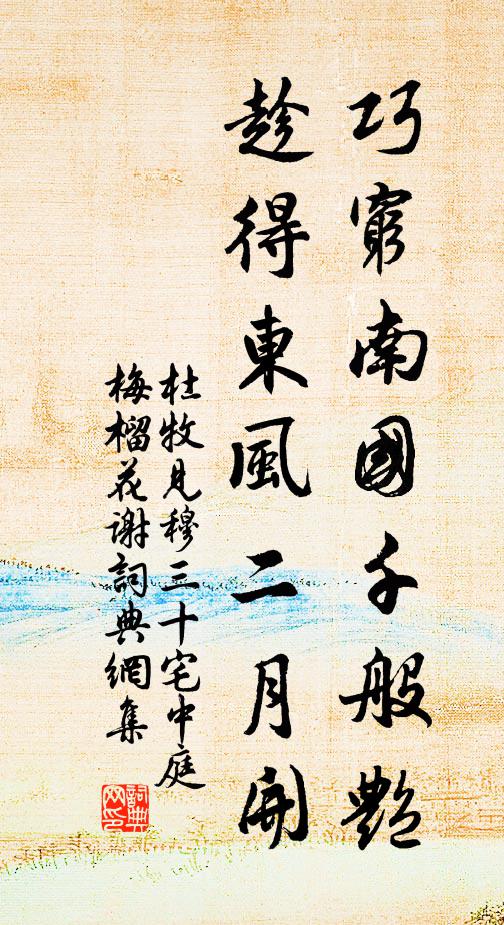 巧窮南國千般艷
趁得東風二月開
杜牧見穆三十宅中庭
梅榴花謝詞典網集
詞典
网印